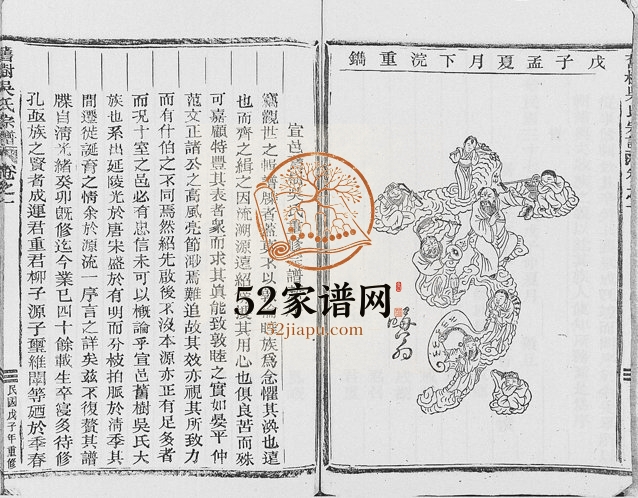 戊子孟夏月下浣重鐫
晦翁
宣邑吳氏修譜
竊觀世之譜牒者以睦族為念懼其渙也遠
也而齊之緝之因流溯源遠紹其用心也俱良苦而殊
可嘉顧特豐其表者衆而求其眞能致敦睦之實如晏平仲
范文正諸公之高風亮節渺焉難追故其效亦視其所致力
而有什伯之不同焉然紹先啟後不沒本源亦正有足多者
而況十室之邑必有忠信未可以概論乎宣邑舊樹吳氏大
族也系出延陵光於唐宋盛於有明而分枝拍脈於清季其
間遷徙誕育之情余於源流一序言之詳矣茲不復贅其譜
牒自清光緒癸卯旣修迄今業已四十餘載生卒寖多待修
孔亟族之賢者成運君重君柳子源子璽維闓等廼於季春
舊樹吳氏宗譜
卷之一
民國戊子年重修
52家谱网
52jiapu.com